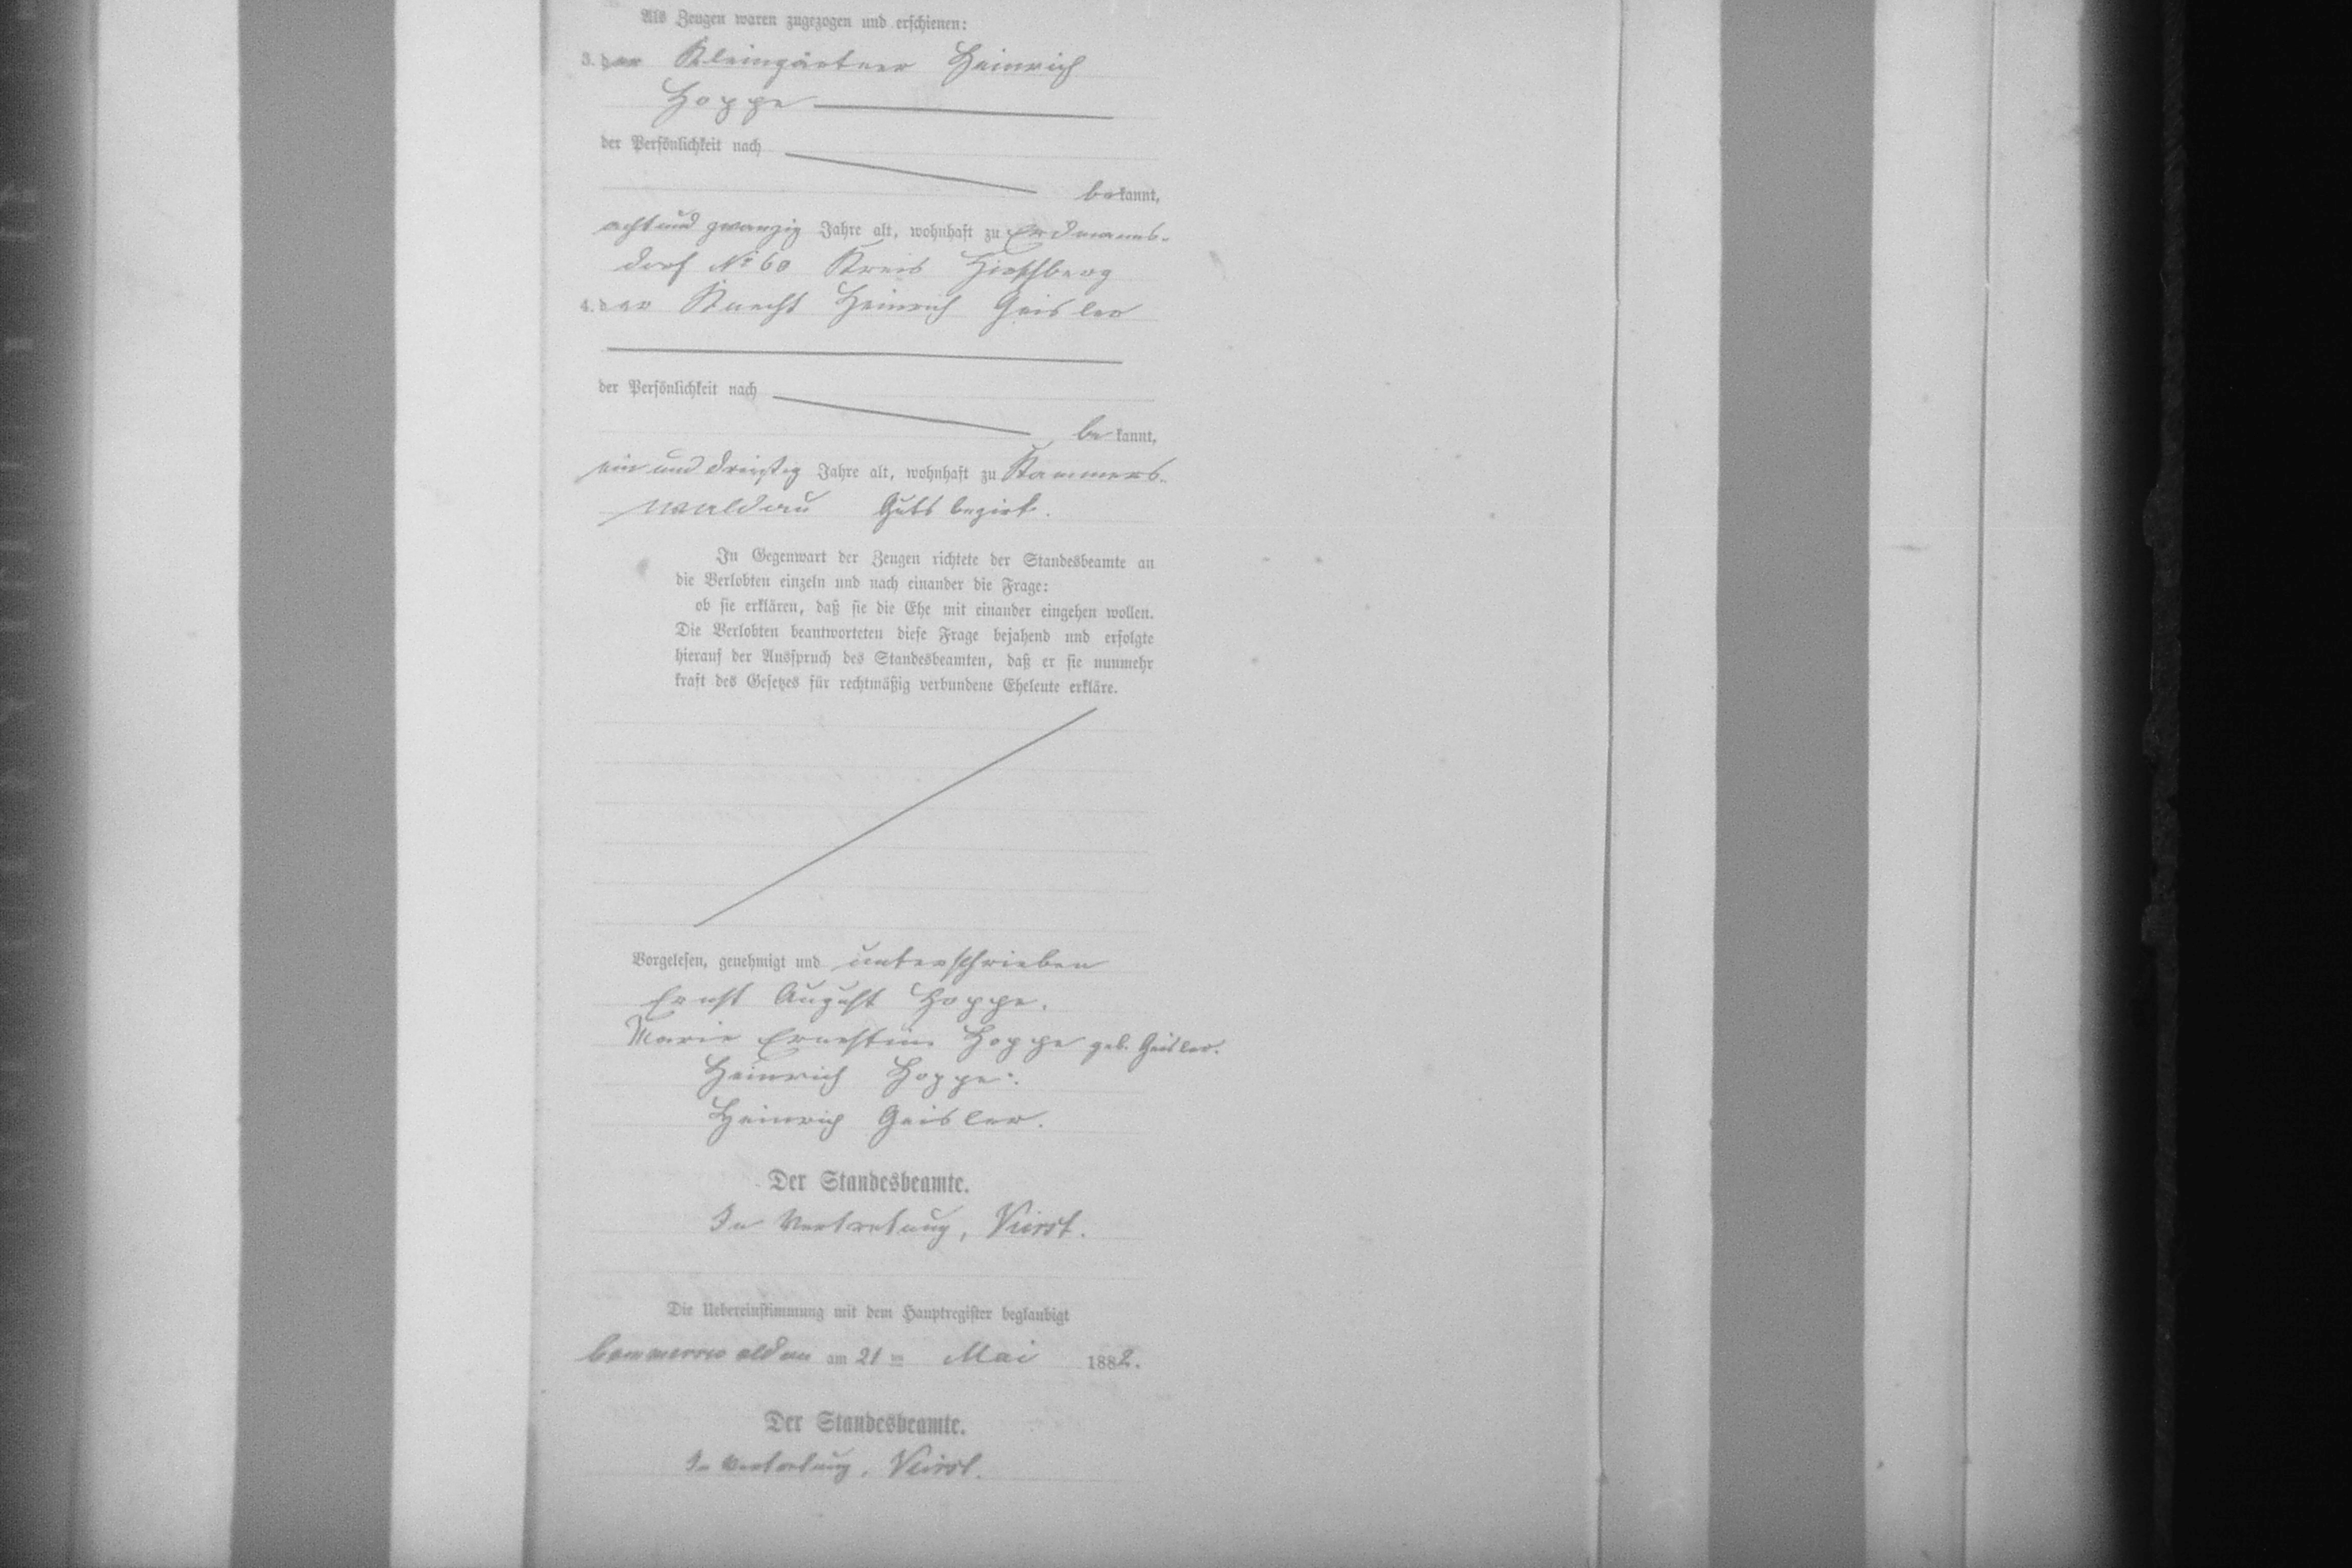 Als Zeugen waren zugezogen und erschienen:
3. der Kleingärtner Heinrich
Hoppe
der Persönlichkeit nach
bekannt,
achtund zwanzig Jahre alt, wohnhaft zu Erdmanns-
dorf No 60 Kreis Hirschberg
4. der Knecht Heinrich Geisler
der Persönlichkeit nach
bekannt,
ein und dreißig Jahre alt, wohnhaft zu Kammers-
waldau Gutsbezirk.
In Gegenwart der Zeugen richtete der Standesbeamte an
die Verlobten einzeln und nach einander die Frage:
ob sie erklären, daß sie die Ehe mit einander eingehen wollen.
Die Verlobten beantworteten diese Frage bejahend und erfolgte
hierauf der Ausspruch des Standesbeamten, daß er sie nunmehr
kraft des Gesetzes für rechtmäßig verbundene Eheleute erkläre.
Vorgelesen, genehmigt und unterschrieben
Ernst August Hoppe.
Marie Ernestine Hoppe geb. Geisler.
Heinrich Hoppe.
Heinrich Geisler.
Der Standesbeamte.
In Vertretung,
Die Uebereinstimmung mit dem Hauptregister beglaubigt
Cammerswaldau am 21ten Mai 1882.
Der Standesbeamte.
In Vertretung,